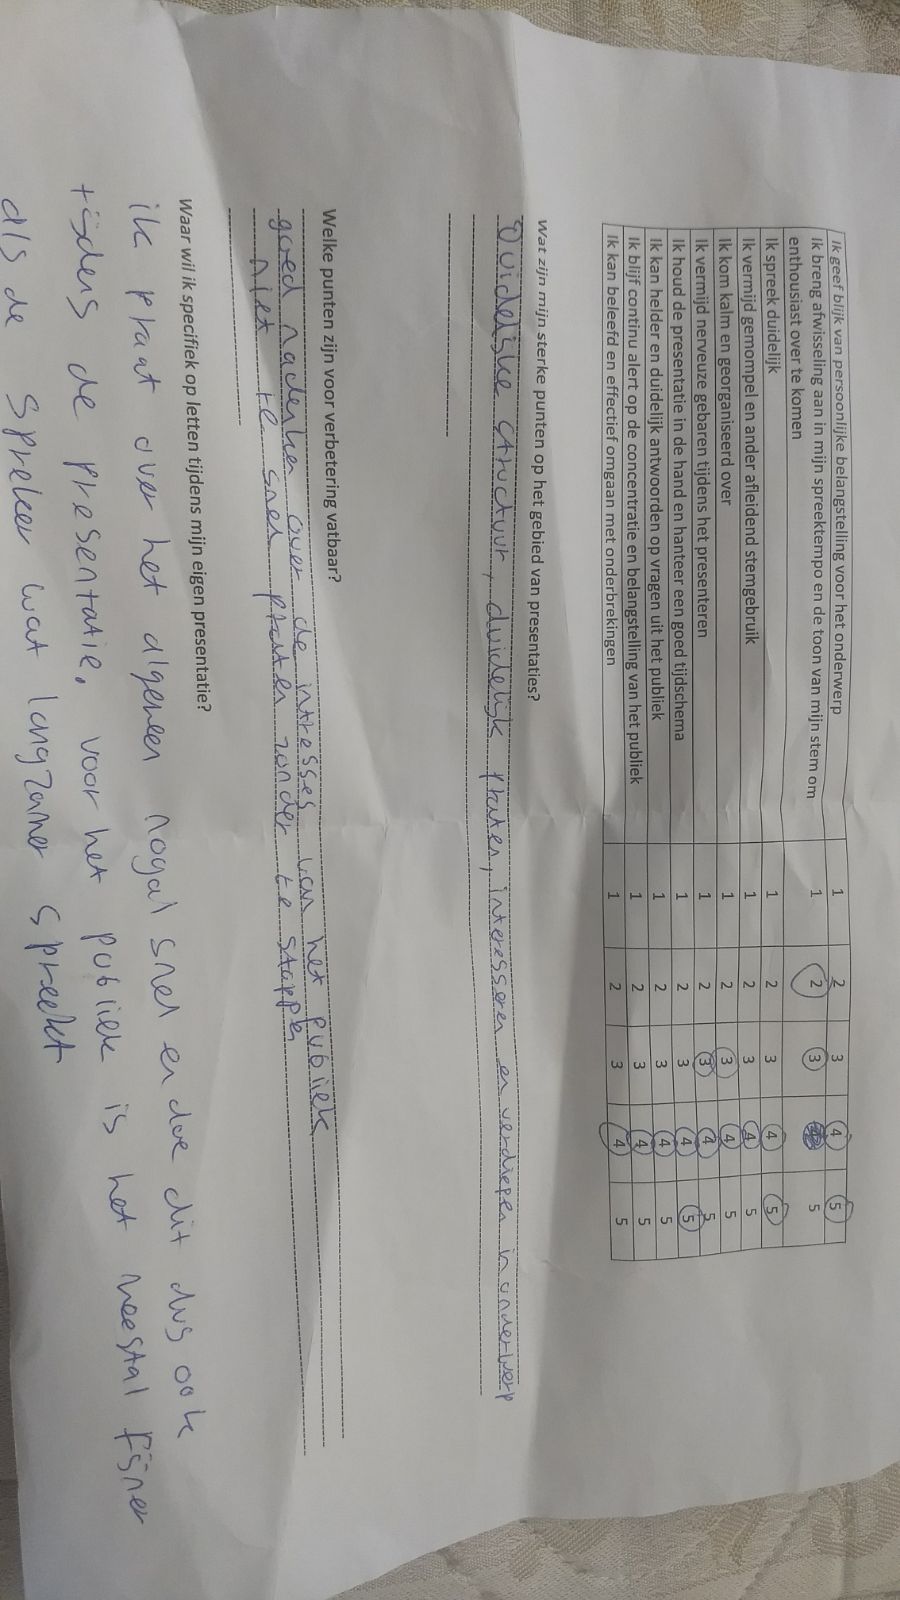 Ik geef blijk van persoonlijke belangstelling voor het onderwerp 1 2 3 4 5
Ik breng afwisseling aan in mijn spreektempo en de toon van mijn stem om 1 2 3 4 5
enthousiast over te komen
Ik spreek duidelijk 1 2 3 4 5
Ik vermijd gemompel en ander afleidend stemgebruik 1 2 3 4 5
Ik kom kalm en georganiseerd over 1 2 3 4 5
Ik vermijd nerveuze gebaren tijdens het presenteren 1 2 3 4 5
Ik houd de presentatie in de hand en hanteer een goed tijdschema 1 2 3 4 5
Ik kan helder en duidelijk antwoorden op vragen uit het publiek 1 2 3 4 5
Ik blijf continu alert op de concentratie en belangstelling van het publiek 1 2 3 4 5
Ik kan beleefd en effectief omgaan met onderbrekingen 1 2 3 4 5
Wat zijn mijn sterke punten op het gebied van presentaties?
Duidelijke structuur, duidelijk praten, interesseren en verdiepen in onderwerp
Welke punten zijn voor verbetering vatbaar?
goed nadenken over de intresses van het publiek
niet te snel praten zonder te stoppen
Waar wil ik specifiek op letten tijdens mijn eigen presentatie?
ik praat over het algemeen nogal snel en doe dit dus ook
tijdens de presentatie. voor het publiek is het meestal fijner
als de spreker wat langzamer spreekt